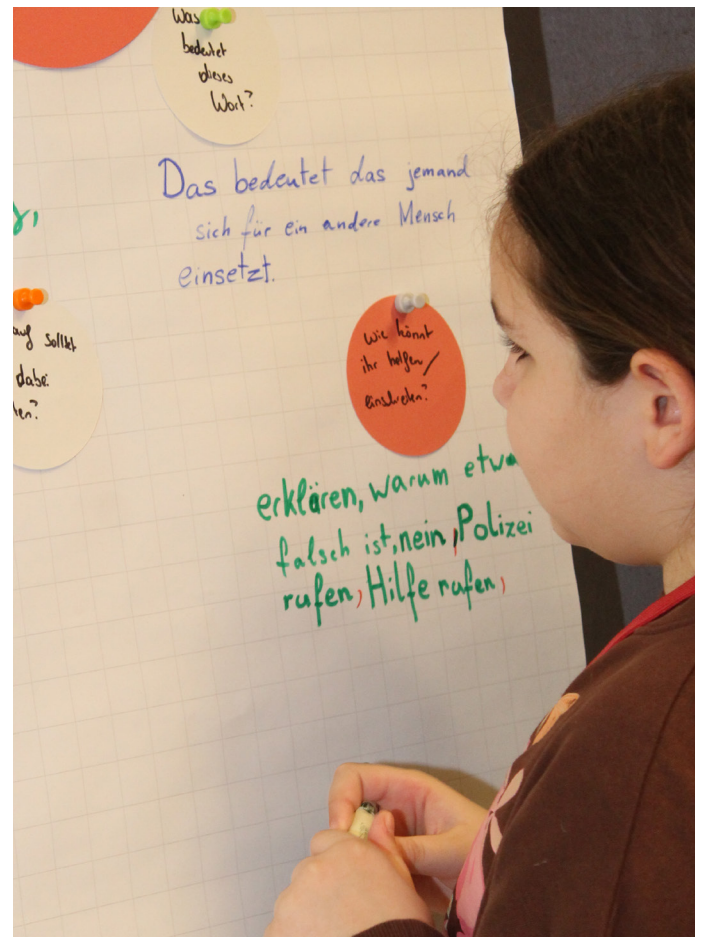 Was
bedeutet
dieses
Wort?
Das bedeutet das jemand
sich für ein andere Mensch
einsetzt.
auf solltet
dabei
ten?
Wie könnt
ihr helfen/
einschreiten?
erklären, warum etwa
falsch ist, nein, Polizei
rufen, Hilfe rufen,